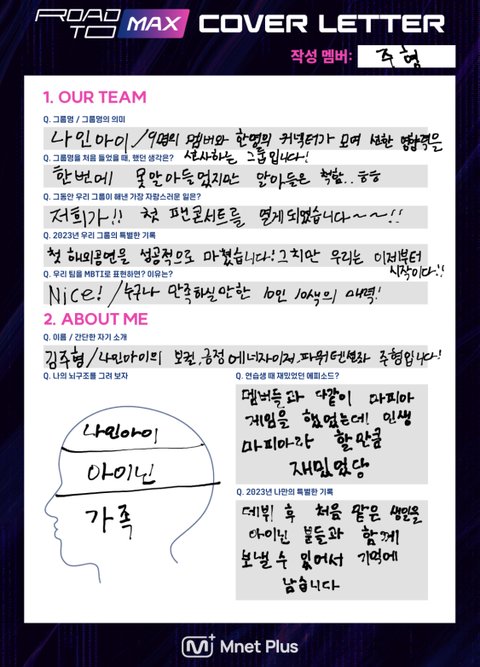 ROAD TO MAX COVER LETTER
작성 멤버: 주형
1. OUR TEAM
Q. 그룹명 / 그룹명의 의미
나인아이 / 9명의 멤버와 한명의 커넥터가 모여 선한 영향력을
선사하는 그룹입니다!
Q. 그룹명을 처음 들었을 때, 했던 생각은?
한번에 못알아들었지만 알아들은 척함.. ㅎㅎ
Q. 그동안 우리 그룹이 해낸 가장 자랑스러운 일은?
저희가!! 첫 팬콘서트를 열게 되었습니다~~!!
Q. 2023년 우리 그룹의 특별한 기록
첫 해외공연을 성공적으로 마쳤습니다! 그치만 우리는 이제부터
시작이다!!
Q. 우리 팀을 MBTI로 표현하면? 이유는?
Nice! / 누구나 만족하실만한 10인 10색의 매력!
2. ABOUT ME
Q. 이름 / 간단한 자기 소개
김주형 / 나인아이의 보컬, 긍정에너자이저, 파워텐션좌 주형입니다!
Q. 나의 뇌구조를 그려 보자
나인아이
아이닌
가족
Q. 연습생 때 재밌었던 에피소드?
멤버들과 다같이 마피아
게임을 했었는데! 인생
마피아라 할만큼
재밌었당
Q. 2023년 나만의 특별한 기록
데뷔 후 처음 맡은 생일을
아이닌 분들과 함께
보낼 수 있어서 기억에
남습니다
M Mnet Plus